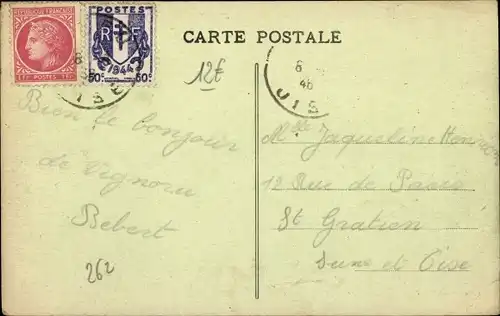 REPUBLIQUE FRANÇAISE
1F POSTES 1F
POSTES
RF
1944
50c 50c
CARTE POSTALE
12f
6
46
OISE
Bien le bonjour
de Vignoru
Bebert
262
Mlle Jaqueline
12 Rue de Paris
St Gratien
Seine et Oise